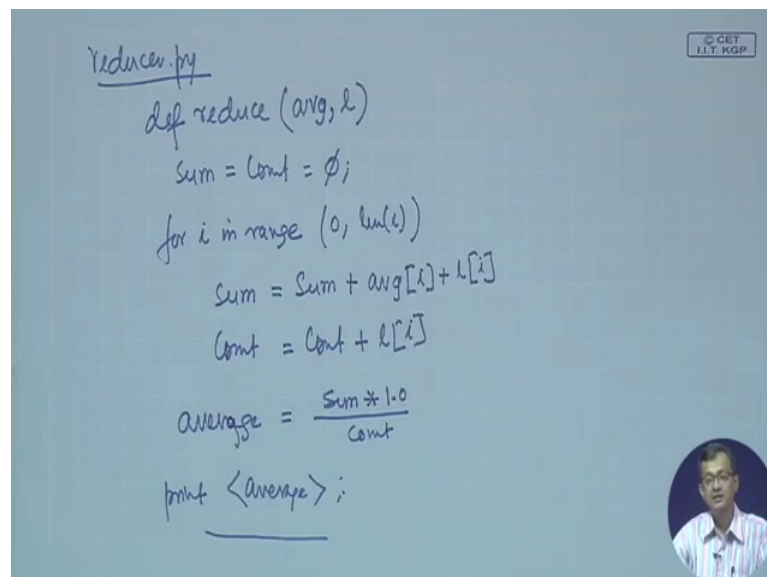 reducer.py
© CET
I.I.T. KGP
def reduce (avg, l)
Sum = Count = ∅;
for i in range (0, len(l))
Sum = Sum + avg[i] + l[i]
Count = Count + l[i]
average = Sum * 1.0 / Count
print <average>;